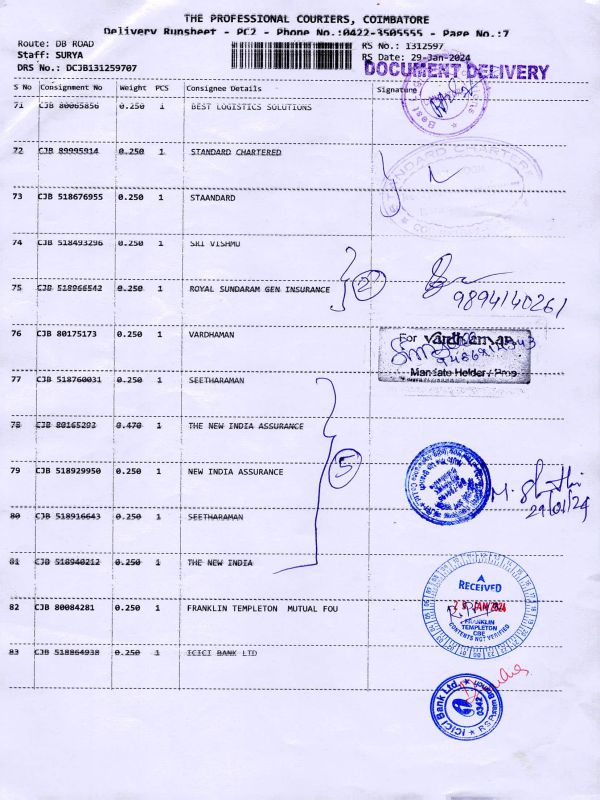 THE PROFESSIONAL COURIERS, COIMBATORE
Delivery Runsheet - PC2 - Phone No.:0422-3505555 - Page No.:7
Route: DB ROAD
Staff: SURYA
DRS No.: DCJB131259707
RS No.: 1312597
RS Date: 29-Jan-2024
DOCUMENT DELIVERY
S No Consignment No Weight PCS Consignee Details Signature
71 CJB 80065856 0.250 1 BEST LOGISTICS SOLUTIONS
72 CJB 89995914 0.250 1 STANDARD CHARTERED
73 CJB 518676955 0.250 1 STAANDARD
74 CJB 518493296 0.250 1 SRI VISHMU
75 CJB 518966542 0.250 1 ROYAL SUNDARAM GEN INSURANCE
2
9894140261
76 CJB 80175173 0.250 1 VARDHAMAN
For vardhaman
Mandate Holder / Prop
77 CJB 518760031 0.250 1 SEETHARAMAN
78 CJB 80165293 0.470 1 THE NEW INDIA ASSURANCE
79 CJB 518929950 0.250 1 NEW INDIA ASSURANCE
5
29/01/24
80 CJB 518916643 0.250 1 SEETHARAMAN
81 CJB 518940212 0.250 1 THE NEW INDIA
82 CJB 80084281 0.250 1 FRANKLIN TEMPLETON MUTUAL FOU
RECEIVED
FRANKLIN
TEMPLETON
CBE
CONTENTS NOT VERIFIED
83 CJB 518864938 0.250 1 ICICI BANK LTD
ICICI Bank Ltd.
0342
R S Puram Branch